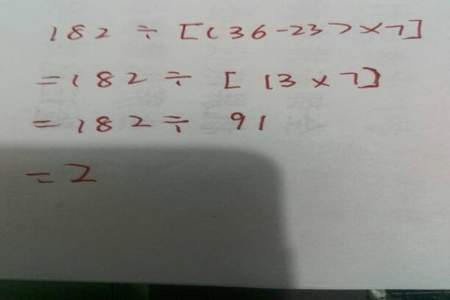 182÷[(36-23)×7]
=182÷[13×7]
=182÷91
=2